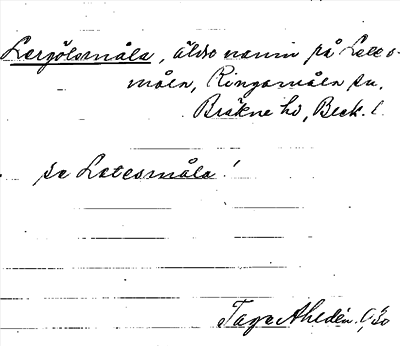 Lergölsmåla, äldre namn på Lates-
måla, Ringamåla sn.
Bräkne hd, Blek. l.
se Latesmåla!
Tage Ahldén. 9/30